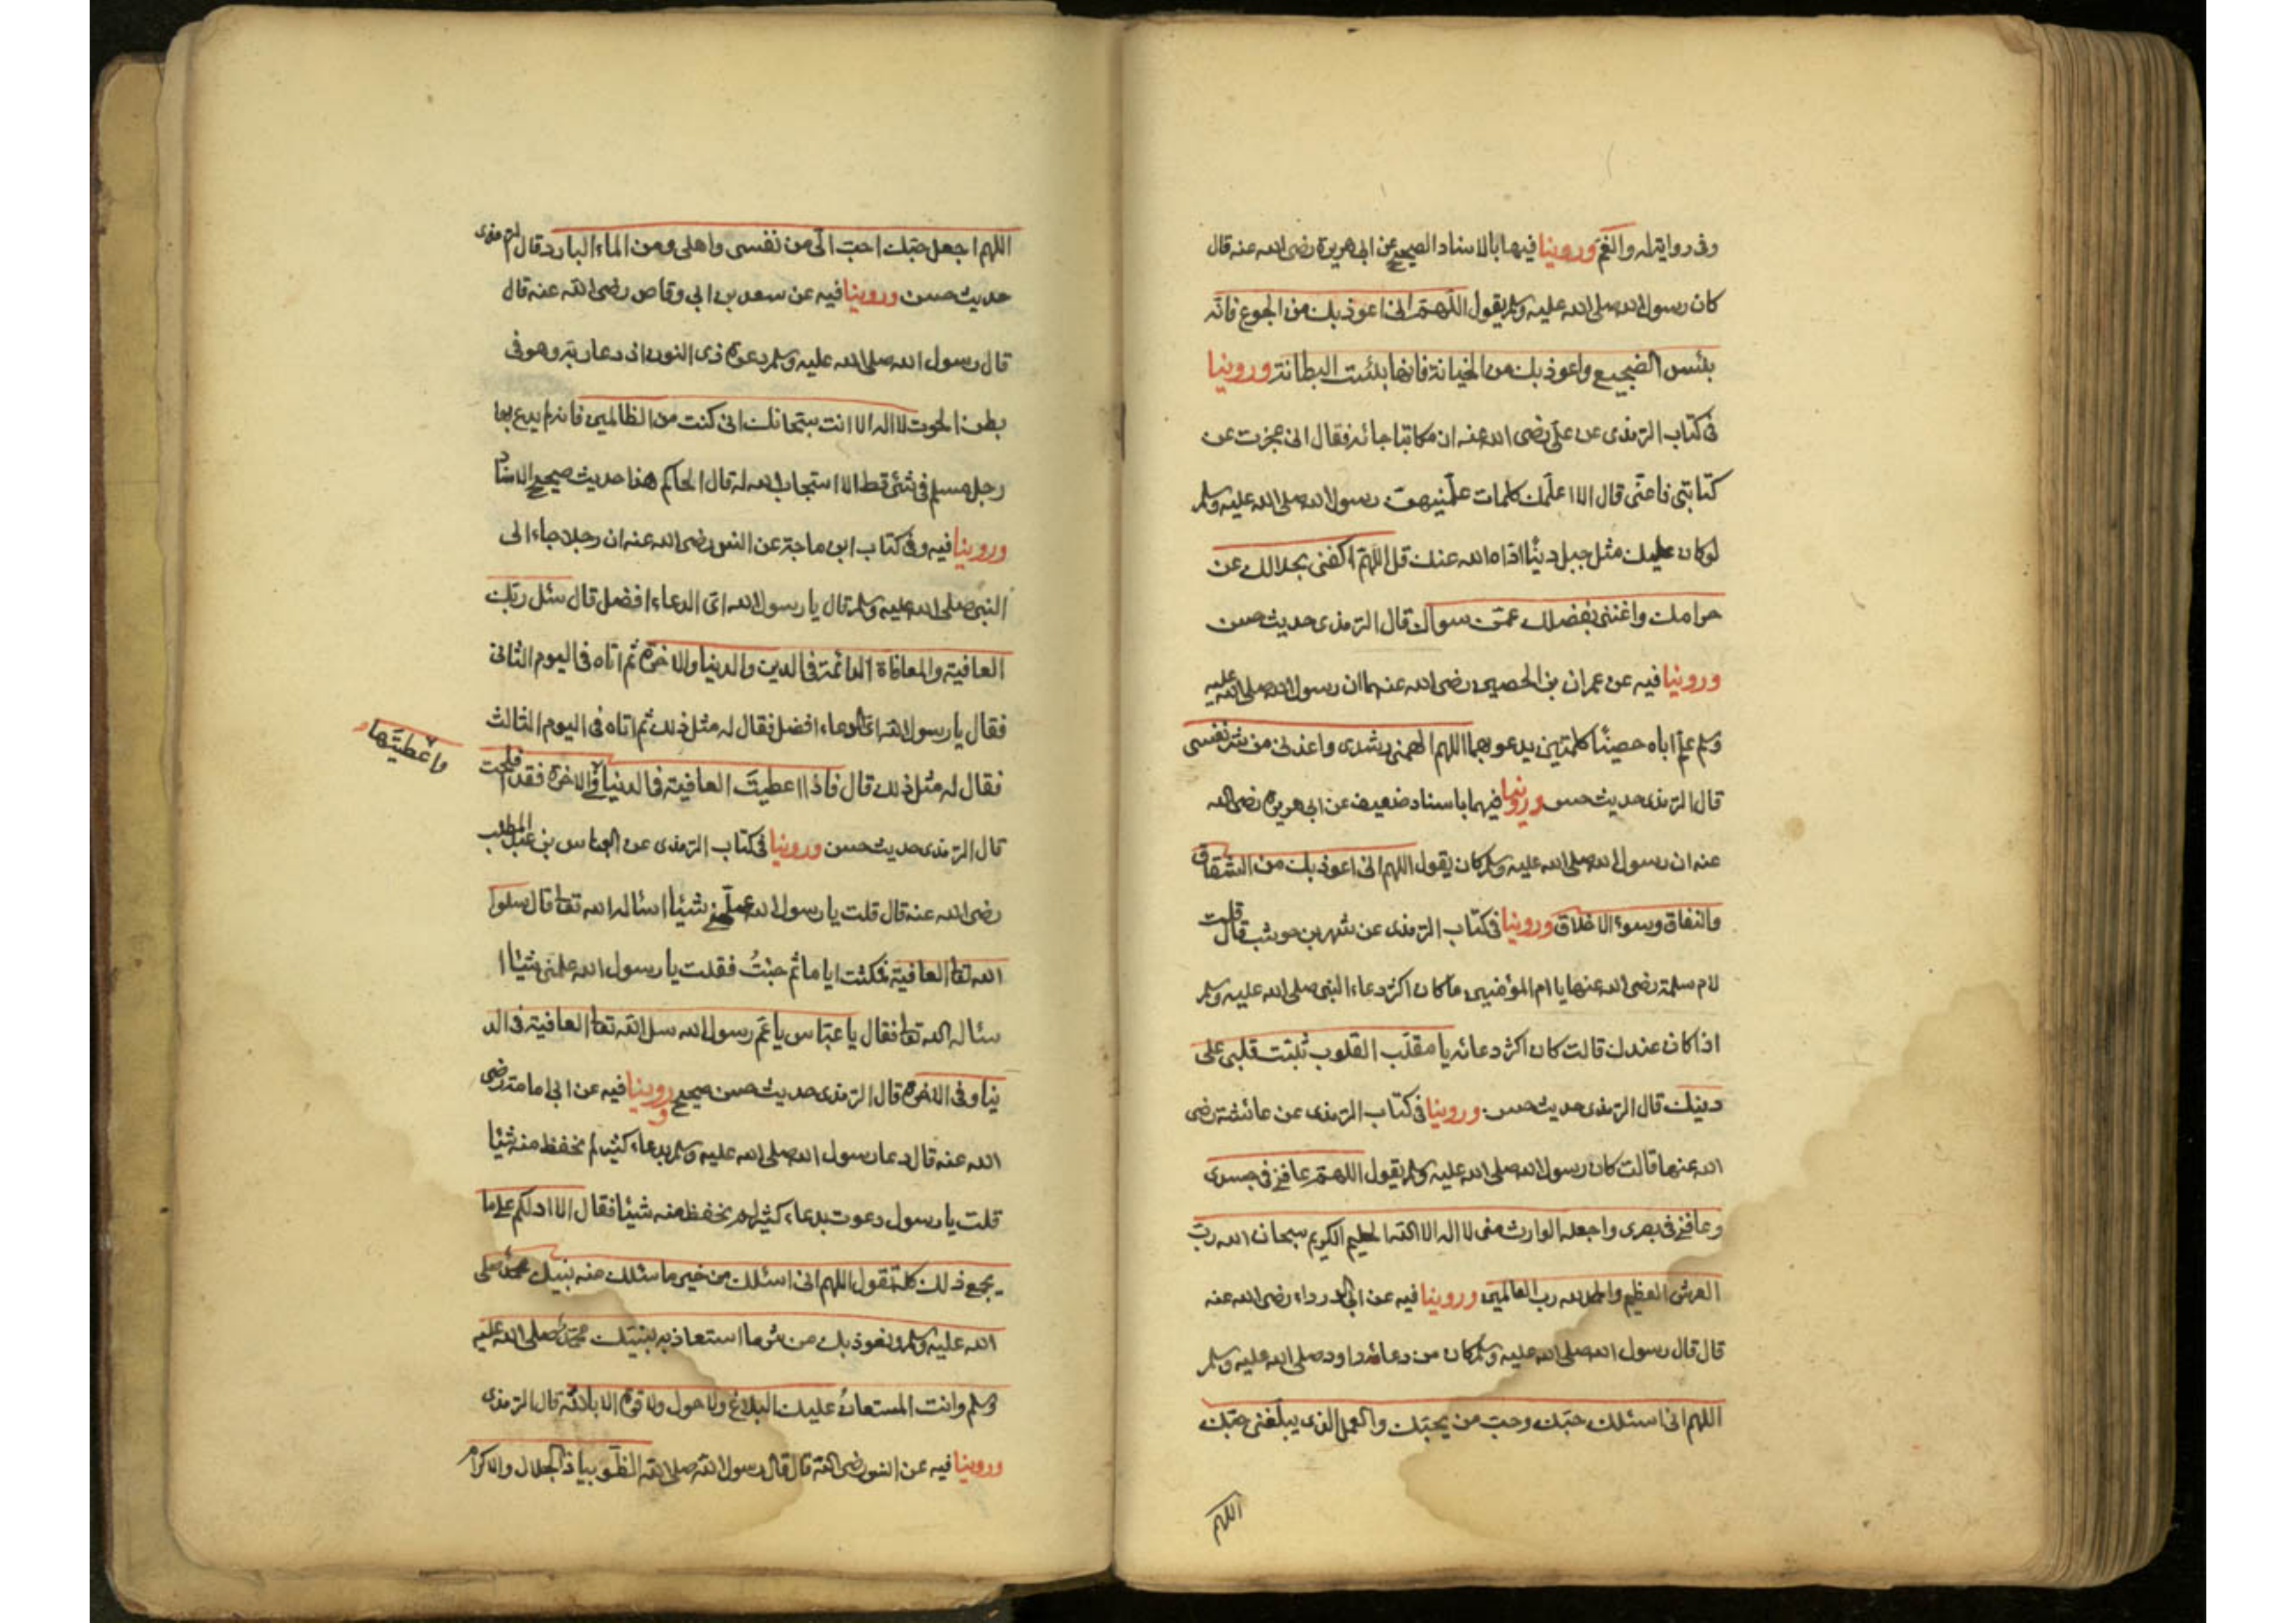 وفى رواية له والغم وروينا فيها بالاسناد الصحيح عن ابى هريرة رضى الله عنه قال
كان رسول الله صلى الله عليه وسلم يقول اللهم انى اعوذ بك من الجوع فانه
بئس الضجيع واعوذ بك من الخيانة فانها بئست البطانة وروينا
فى كتاب الترمذى عن على رضى الله عنه ان مكاتبا جائه فقال انى عجزت عن
كتابتى فاعنى قال الا اعلمك كلمات علمنيهن رسول الله صلى الله عليه وسلم
لوكان عليك مثل جبل دينا اداه الله عنك قل اللهم اكفنى بحلالك عن
حرامك واغننى بفضلك عمن سواك قال الترمذى حديث حسن
وروينا فيه عن عمران بن الحصين رضى الله عنهما ان رسول الله صلى الله عليه
وسلم علم اباه حصينا كلمتين يدعو بهما اللهم الهمنى رشدى واعذنى من شر نفسى
قال الترمذى حديث حسن وروينا فيهما باسناد ضعيف عن ابى هريرة رضى الله
عنه ان رسول الله صلى الله عليه وسلم كان يقول اللهم انى اعوذ بك من الشقاق
والنفاق وسوء الاخلاق وروينا فى كتاب الترمذى عن شهر بن حوشب قال قلت
لام سلمة رضى الله عنها يا ام المؤمنين ما كان اكثر دعاء النبى صلى الله عليه وسلم
اذا كان عندك قالت كان اكثر دعائه يا مقلب القلوب ثبت قلبى على
دينك قال الترمذى حديث حسن وروينا فى كتاب الترمذى عن عائشة رضى
الله عنها قالت كان رسول الله صلى الله عليه وسلم يقول اللهم عافنى فى جسدى
وعافنى فى بصرى واجعله الوارث منى لا اله الا الله الحليم الكريم سبحان الله رب
العرش العظيم والحمد لله رب العالمين وروينا فيه عن ابى الدرداء رضى الله عنه
قال قال رسول الله صلى الله عليه وسلم كان من دعائه داود صلى الله عليه وسلم
اللهم انى اسئلك حبك وحب من يحبك والعمل الذى يبلغنى حبك
اللهم
اللهم اجعل حبك احب الى من نفسى واهلى ومن الماء البارد قال الترمذى
حديث حسن وروينا فيه عن سعد بن ابى وقاص رضى الله عنه قال
قال رسول الله صلى الله عليه وسلم دعوة ذى النون اذ دعا ربه وهو فى
بطن الحوت لا اله الا انت سبحانك انى كنت من الظالمين فانه لم يدع بها
رجل مسلم فى شئ قط الا استجاب الله له قال الحاكم هذا حديث صحيح الاسناد
وروينا فيه وفى كتاب ابن ماجة عن انس رضى الله عنه ان رجلا جاء الى
النبى صلى الله عليه وسلم قال يا رسول الله اى الدعاء افضل قال سئل ربك
العافية والمعافاة الدائمة فى الدين والدنيا والاخرة ثم اتاه فى اليوم الثانى
فقال يا رسول الله اى الدعاء افضل فقال له مثل ذلك ثم اتاه فى اليوم الثالث
فقال له مثل ذلك قال فاذا اعطيت العافية فى الدنيا فى الاخرة فقد افلحت
واعطيتها
قال الترمذى حديث حسن وروينا فى كتاب الترمذى عن العباس بن عبد المطلب
رضى الله عنه قال قلت يا رسول الله علمنى شيئا اسئاله الله تعا قال سلوا
الله تعا العافية فمكثت اياما ثم جئت فقلت يا رسول الله علمنى شيئا ا
سئاله الله تعا فقال يا عباس يا عم رسول الله سل الله تعا العافية فى الد
نيا وفى الاخرة قال الترمذى حديث حسن صحيح وروينا فيه عن ابى امامة رضى
الله عنه قال دعا رسول الله صلى الله عليه وسلم بدعاء كثير لم نحفظ منه شيئا
قلت يا رسول دعوت بدعاء كثير لم نحفظ منه شيئا فقال الا ادلكم على ما
يجمع ذلك كله تقول اللهم انى اسئلك من خير ما سئلك منه نبيك محمد صلى
الله عليه وسلم ونعوذ بك من شر ما استعاذ به نبيك محمد صلى الله عليه
وسلم وانت المستعان عليك البلاغ ولا حول ولا قوة الا بالله قال الترمذى
وروينا فيه عن انس رضى الله قال قال رسول الله صلى الله الظوا بيا ذا الجلال والاكرام